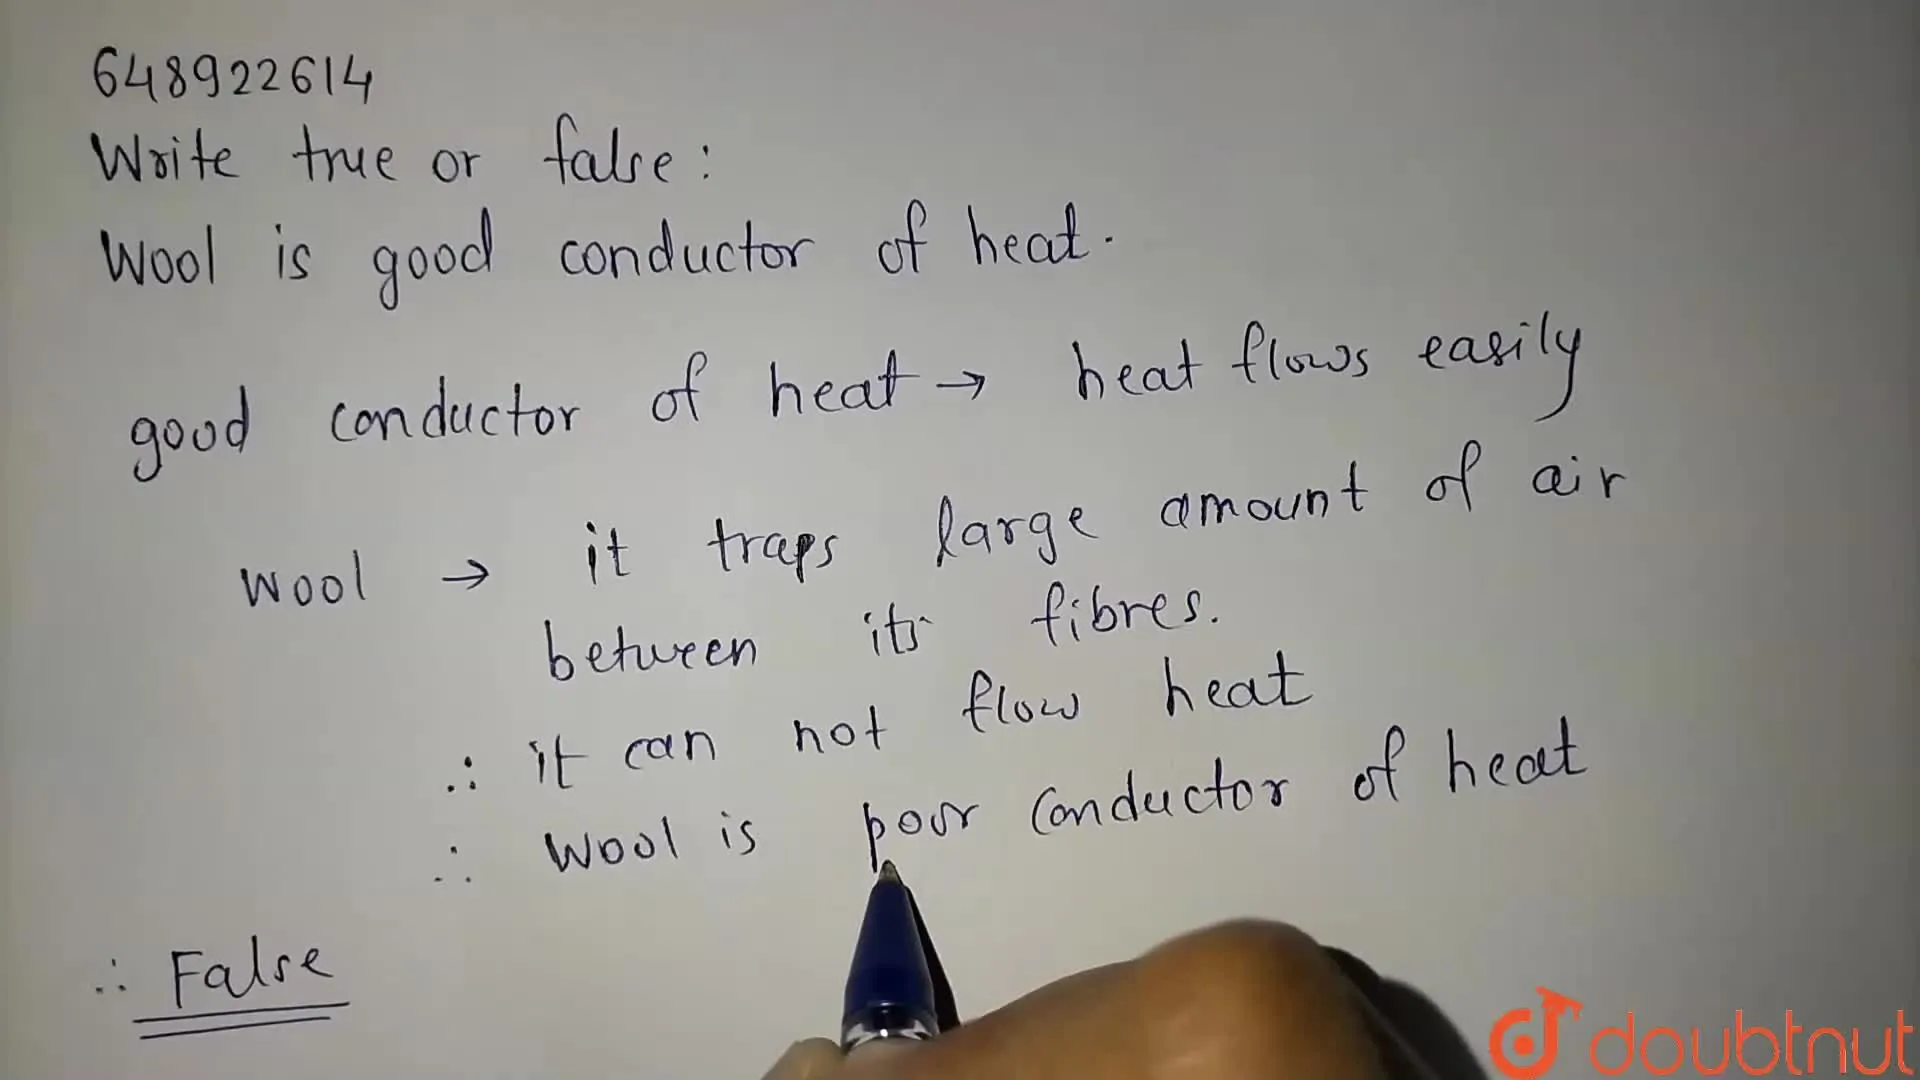 648922614
Write true or false:
Wool is good conductor of heat.
good conductor of heat → heat flows easily
wool → it traps large amount of air
between its fibres.
∴ it can not flow heat
∴ wool is poor conductor of heat
∴ False
doubtnut